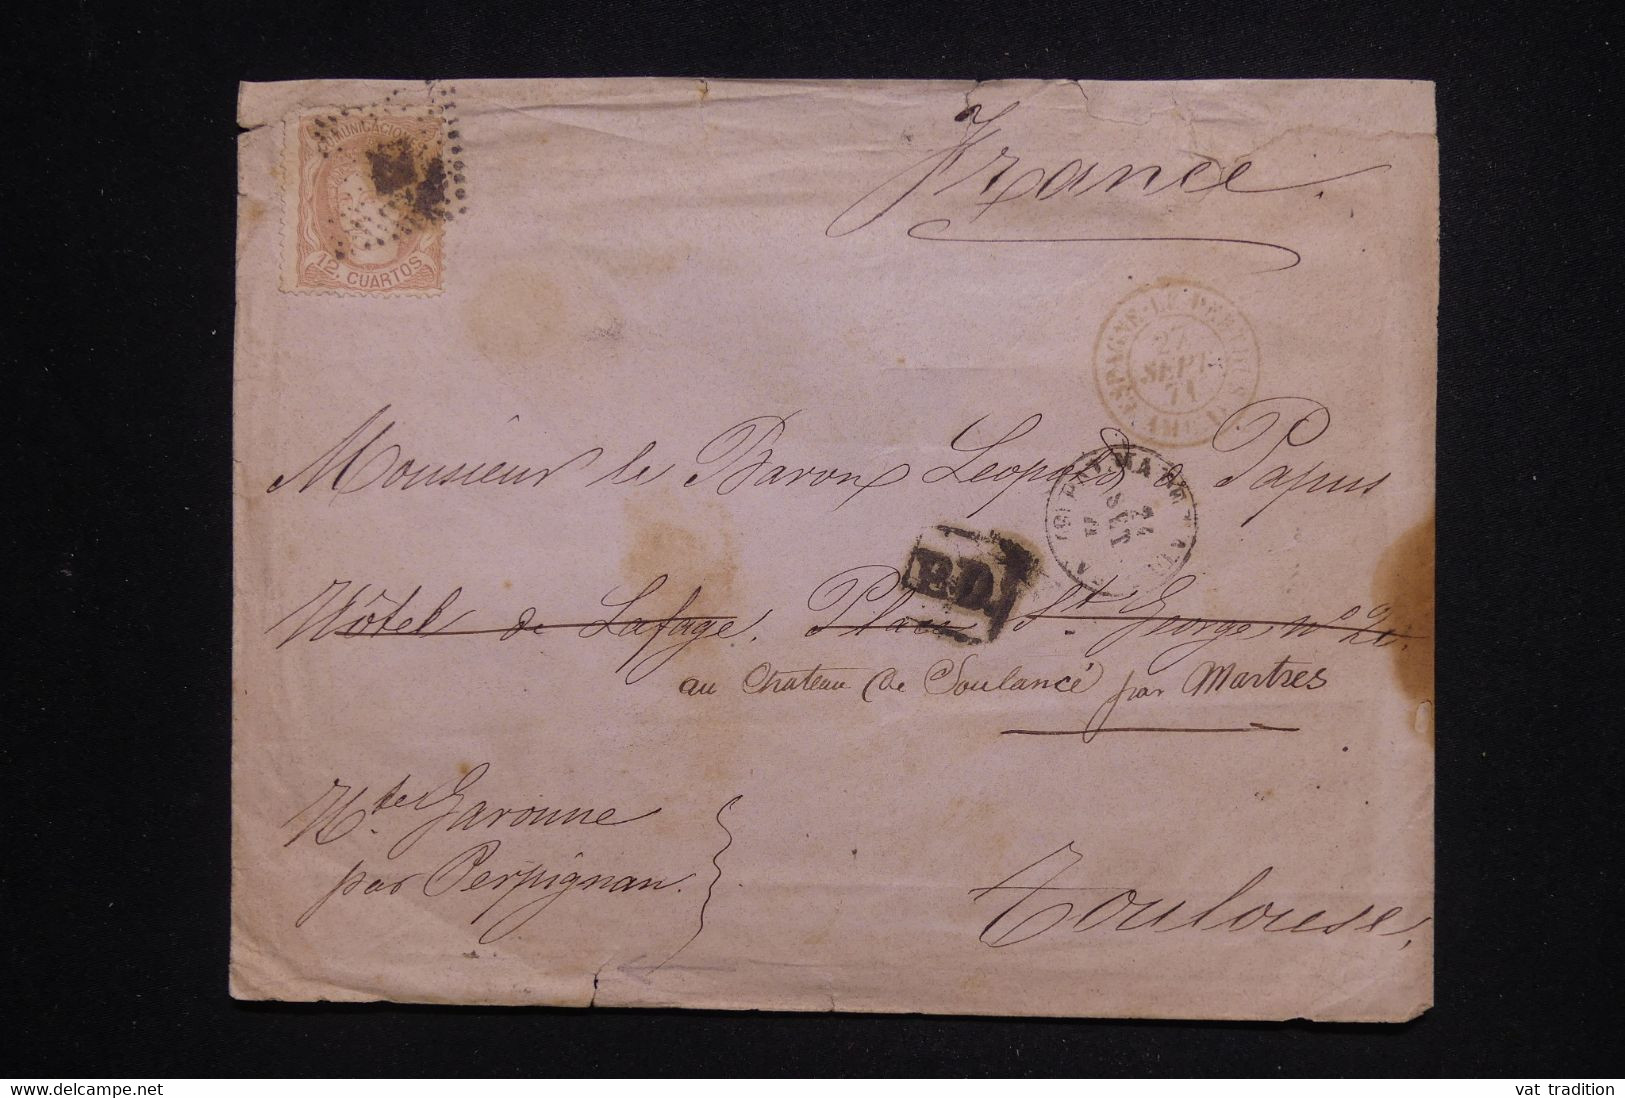 COMUNICACIONES
12. CUARTOS
France.
ESPAGNE·LE PERTHUS
27
SEPT.
71
Monsieur le Baron Leopold de Papus
PALMA DE
24
SET
71
P.D.
Hôtel de Lafage. Place St. George, nº 22.
au Chateau de Soulancé par Martres
Hte. Garonne
par Perpignan.
Toulouse.
Delcampe.net
vat_tradition